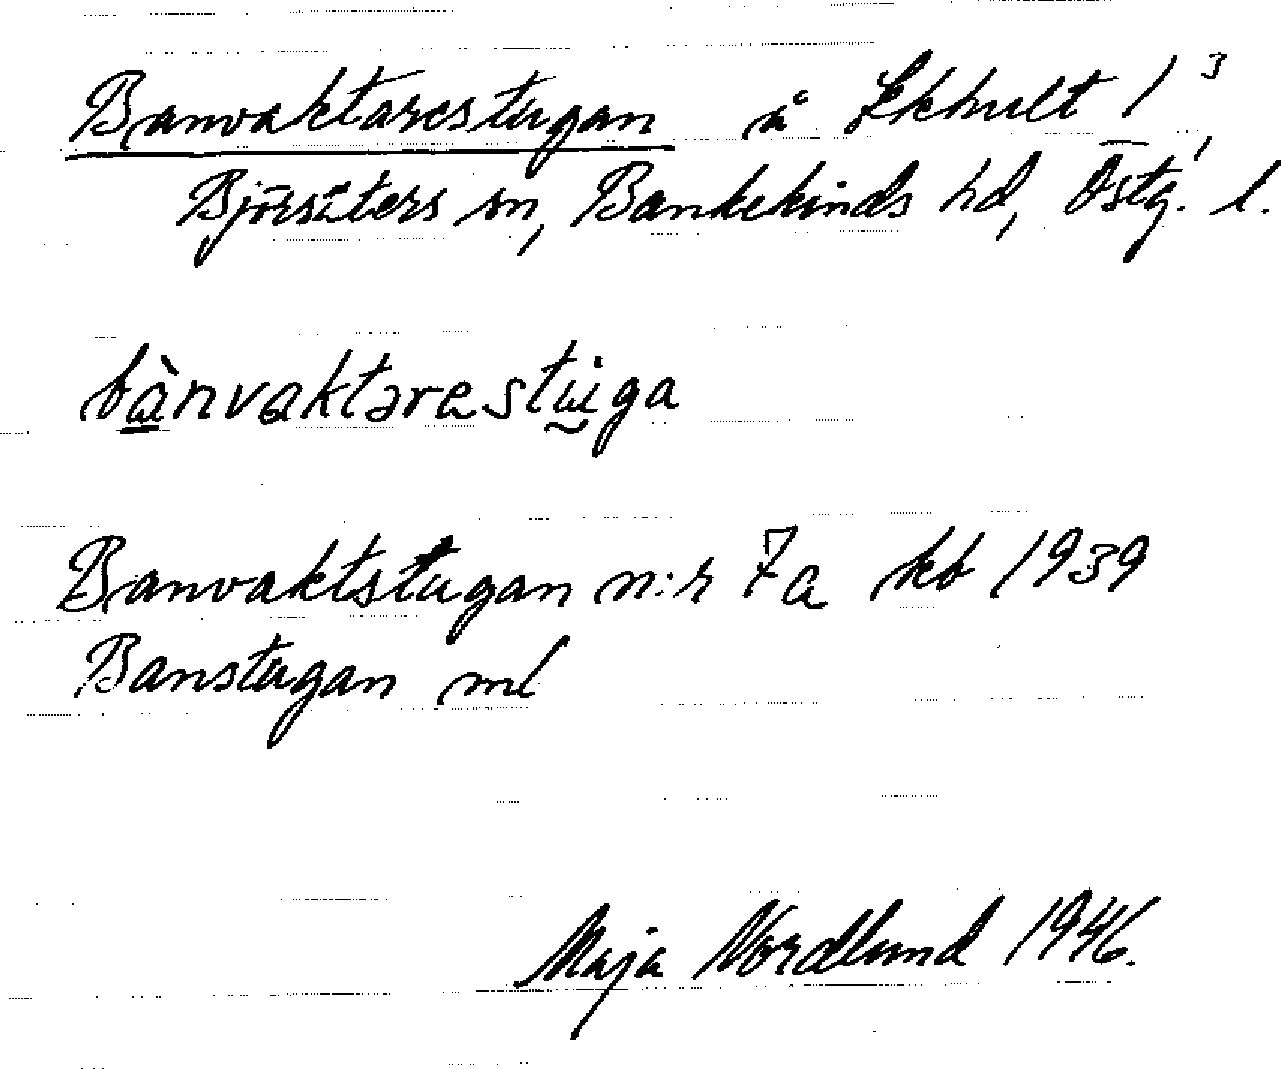 Banvaktarestugan å Ekhult 1³,
Björsäters sn, Bankekinds hd, Östg. l.
bànvaktarestu̇ga
Banvaktstugan n:r 7a kb 1939
Banstugan ml
Maja Nordlund 1946.